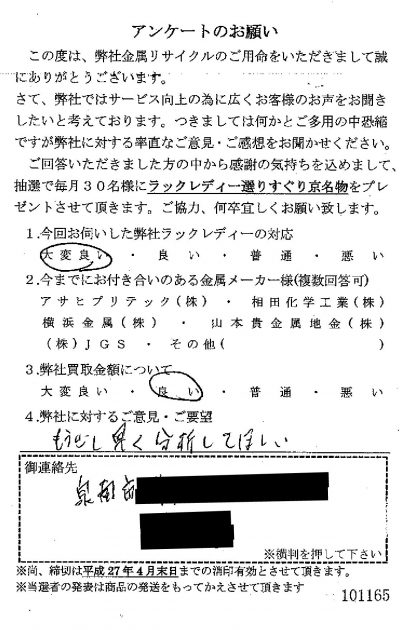 アンケートのお願い
この度は、弊社金属リサイクルのご用命をいただきまして誠
にありがとうございます。
さて、弊社ではサービス向上の為に広くお客様のお声をお聞き
したいと考えております。つきましては何かとご多用の中恐縮
ですが弊社に対する率直なご意見・ご感想をお聞かせください。
ご回答いただきました方の中から感謝の気持ちを込めまして、
抽選で毎月30名様にラックレディー選りすぐり京名物をプレ
ゼントさせて頂きます。ご協力、何卒宜しくお願い致します。
1.今回お伺いした弊社ラックレディーの対応
大変良い ・ 良い ・ 普通 ・ 悪い
2.今までにお付き合いのある金属メーカー様(複数回答可)
アサヒプリテック(株) ・ 相田化学工業(株)
横浜金属(株) ・ 山本貴金属地金(株)
(株)JGS ・ その他( )
3.弊社買取金額について
大変良い ・ 良い ・ 普通 ・ 悪い
4.弊社に対するご意見・ご要望
もう少し早く分析してほしい
御連絡先
※横判を押して下さい
※尚、締切は平成27年4月末日までの消印有効とさせて頂きます。
※当選者の発表は商品の発送をもってかえさせて頂きます
101165